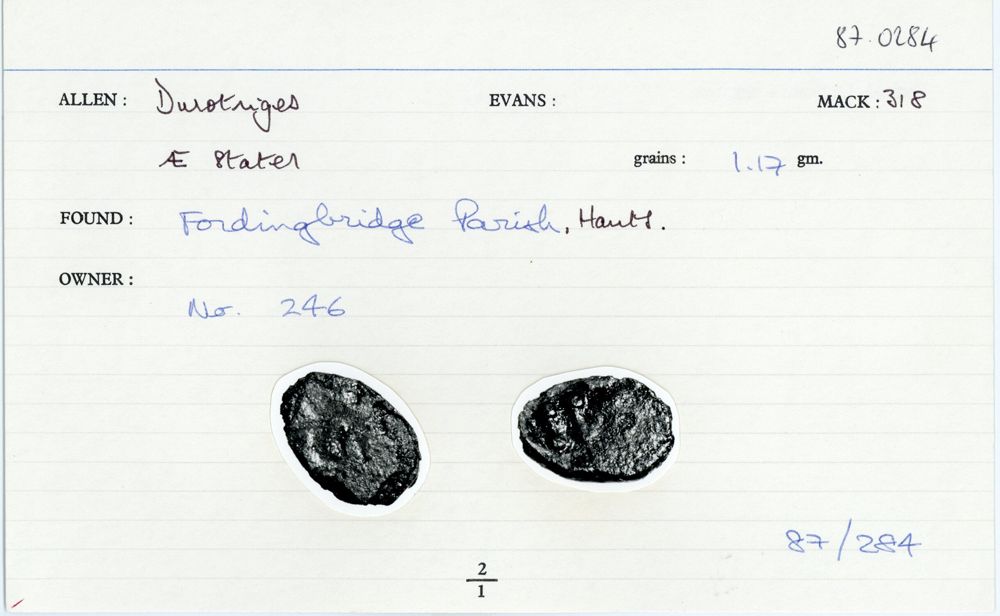 87.0284
ALLEN : Durotriges EVANS : MACK : 318
Æ Stater grains : 1.17 gm.
FOUND : Fordingbridge Parish, Hants.
OWNER :
No. 246
87/284
2
1